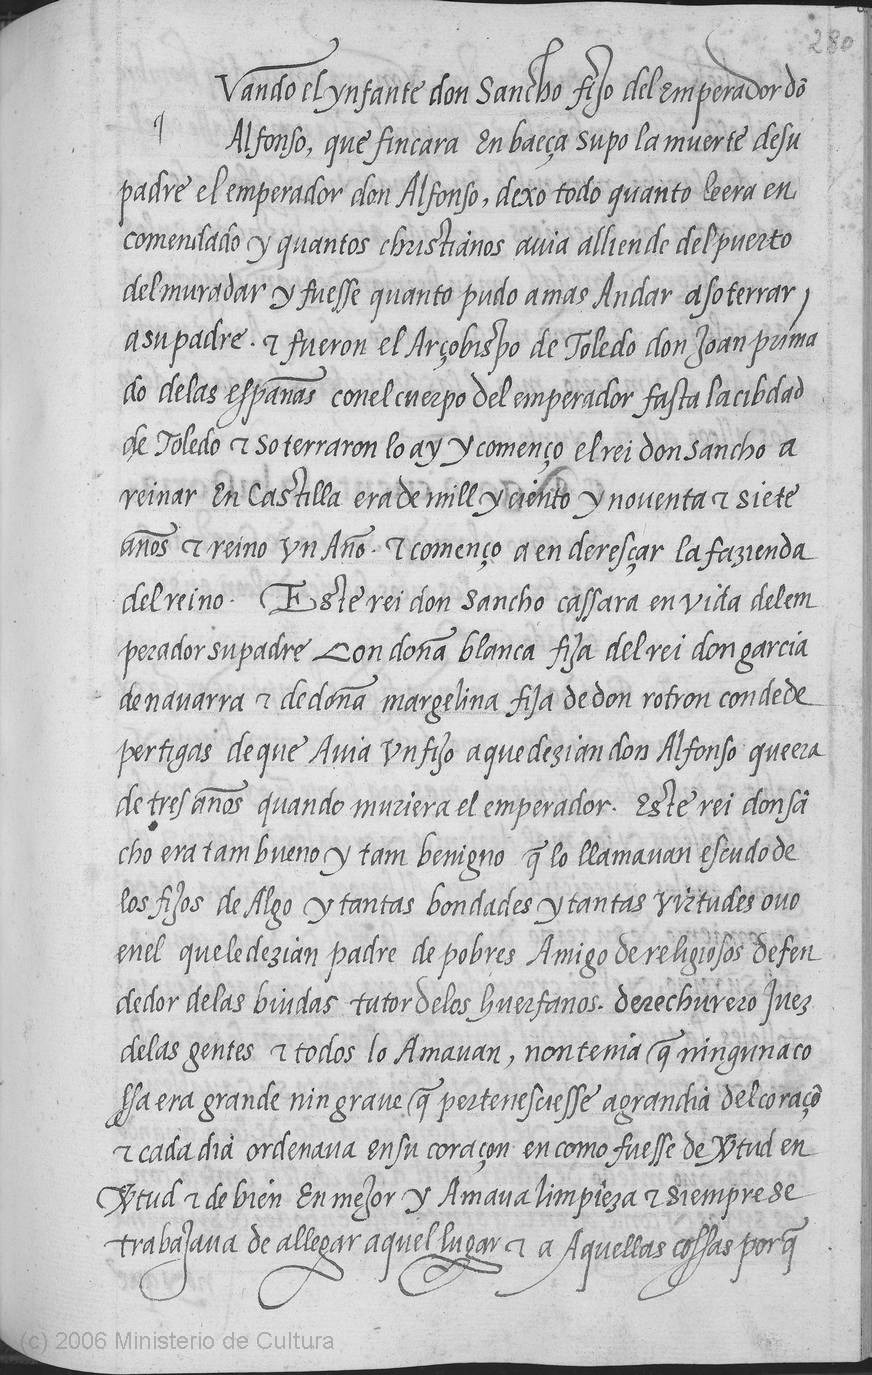 280
Vando el ynfante don Sancho fijo del Emperador dō
Alfonso, que fincara En baeça supo la muerte de su
padre el emperador don Alfonso, dexo todo quanto le era en
comendado y quantos christianos auia alliende del puerto
del muradar y fuesse quanto pudo a mas Andar a soterrar
a su padre. τ fueron el Arçobispo de Toledo don Joan prima
do delas españas con el cuerpo del emperador fasta la cibdad
de Toledo τ soterraron lo ay y començo el rei don sancho a
reinar En Castilla era de mill y ciento y noventa τ siete
años τ reino vn Año. τ començo a enderesçar la fazienda
del reino. Este rei don sancho cassara en vida del em
perador su padre Con doña blanca fija del rei don garcia
de nauarra τ de doña margelina fija de don rotron conde de
pertigas de que Auia vn fijo a que dezian don Alfonso que era
de tres años quando muriera el emperador. Este rei don sā
cho era tam bueno y tam benigno q̄ lo llamauan escudo de
los fijos de Algo y tantas bondades y tantas virtudes ouo
en el que le dezian padre de pobres Amigo de religiosos defen
dedor de las biudas tutor de los huerfanos. derechurero Juez
de las gentes τ todos lo Amauan, non tenia q̄ ninguna co
ssa era grande nin graue q̄ pertenesciesse a grandia del coraçō
τ cada dia ordenaua en su coraçon en como fuesse de Vtud en
Vtud τ de bien En mejor y Amaua limpieza τ siempre se
trabajaua de allegar aquel lugar τ a Aquellas cossas porq̄
(c) 2006 Ministerio de Cultura